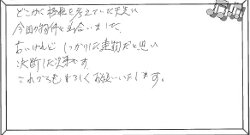 どこかへ移転を考えていた矢先に
今回の物件と出会いました。
古いけれど しっかりした建物だと思い
決断した次第です
これからもよろしくお願いいたします。